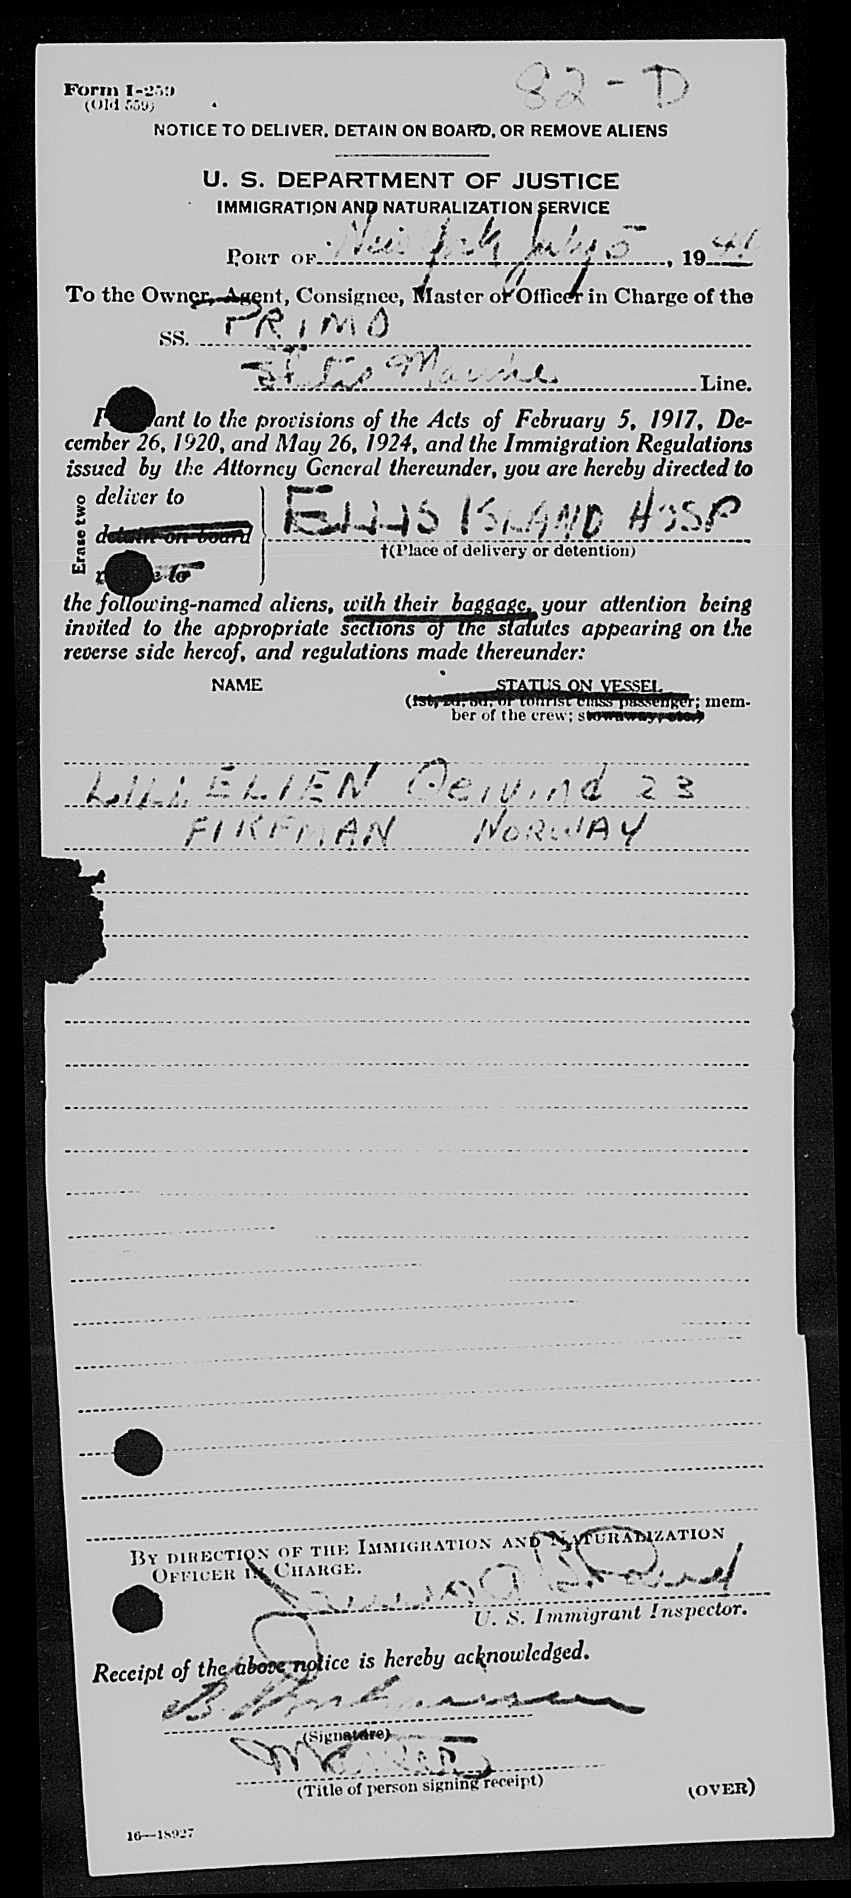 82-D
Form I-259
(Old 559)
NOTICE TO DELIVER, DETAIN ON BOARD, OR REMOVE ALIENS
U. S. DEPARTMENT OF JUSTICE
IMMIGRATION AND NATURALIZATION SERVICE
PORT OF New York July 5, 1941
To the Owner, Agent, Consignee, Master or Officer in Charge of the
SS. PRIMO
Line.
ant to the provisions of the Acts of February 5, 1917, De-
cember 26, 1920, and May 26, 1924, and the Immigration Regulations
issued by the Attorney General thereunder, you are hereby directed to
Erase two
deliver to
detain on board
e to
ELLIS ISLAND HOSP
†(Place of delivery or detention)
the following-named aliens, with their baggage, your attention being
invited to the appropriate sections of the statutes appearing on the
reverse side hereof, and regulations made thereunder:
NAME STATUS ON VESSEL
(1st, 2d, 3d, or tourist class passenger; mem-
ber of the crew; stowaway, etc.)
LILLELIEN 23
FIREMAN NORWAY
BY DIRECTION OF THE IMMIGRATION AND NATURALIZATION
OFFICER IN CHARGE.
U. S. Immigrant Inspector.
Receipt of the above notice is hereby acknowledged.
(Signature)
Master
(Title of person signing receipt)
(OVER)
16—18927